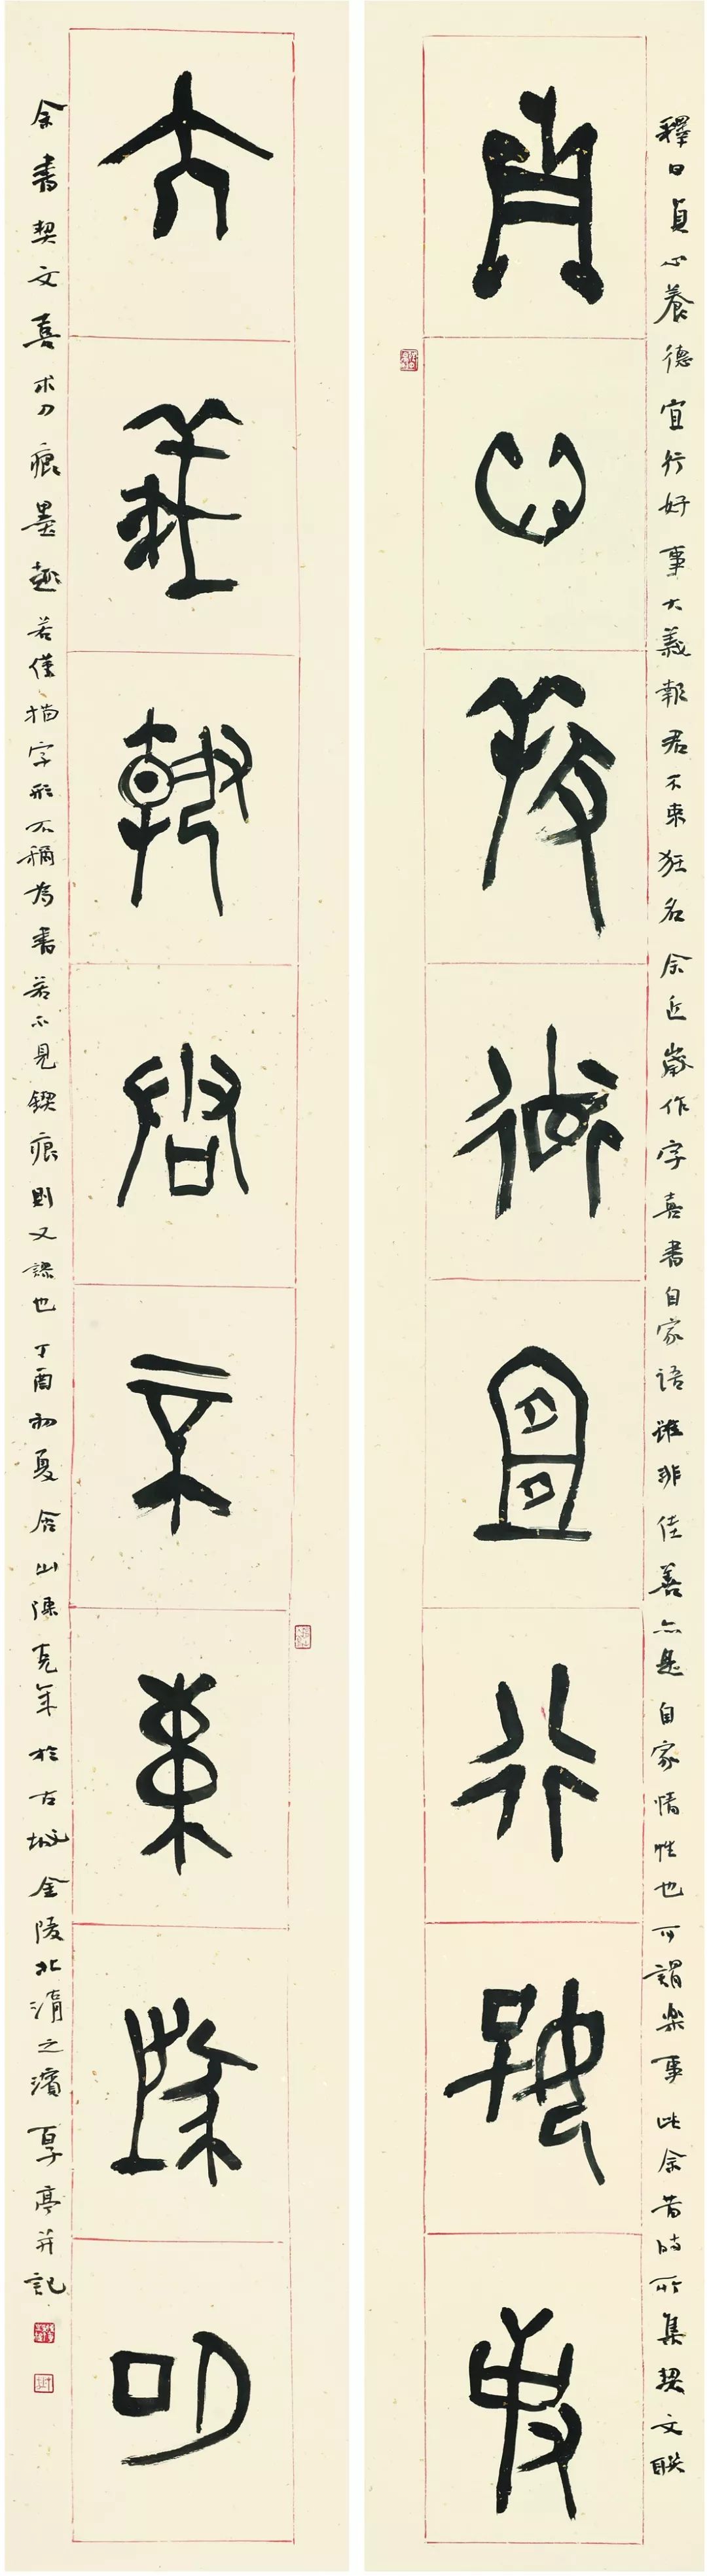 釋曰貞心養德宜行好事大義報君不束狂名余近歲作字喜書自家語雖非佳善亦是自家情性也可謂樂事此余昔時所集契文联
貞心養德宜行好事
大義報君不束狂名
余書契文喜求刀痕墨趣若僅描字形不稱為書若不見鍥痕則又謬也丁酉初夏含山陳克年於古城金陵北渭之濱享亭并記